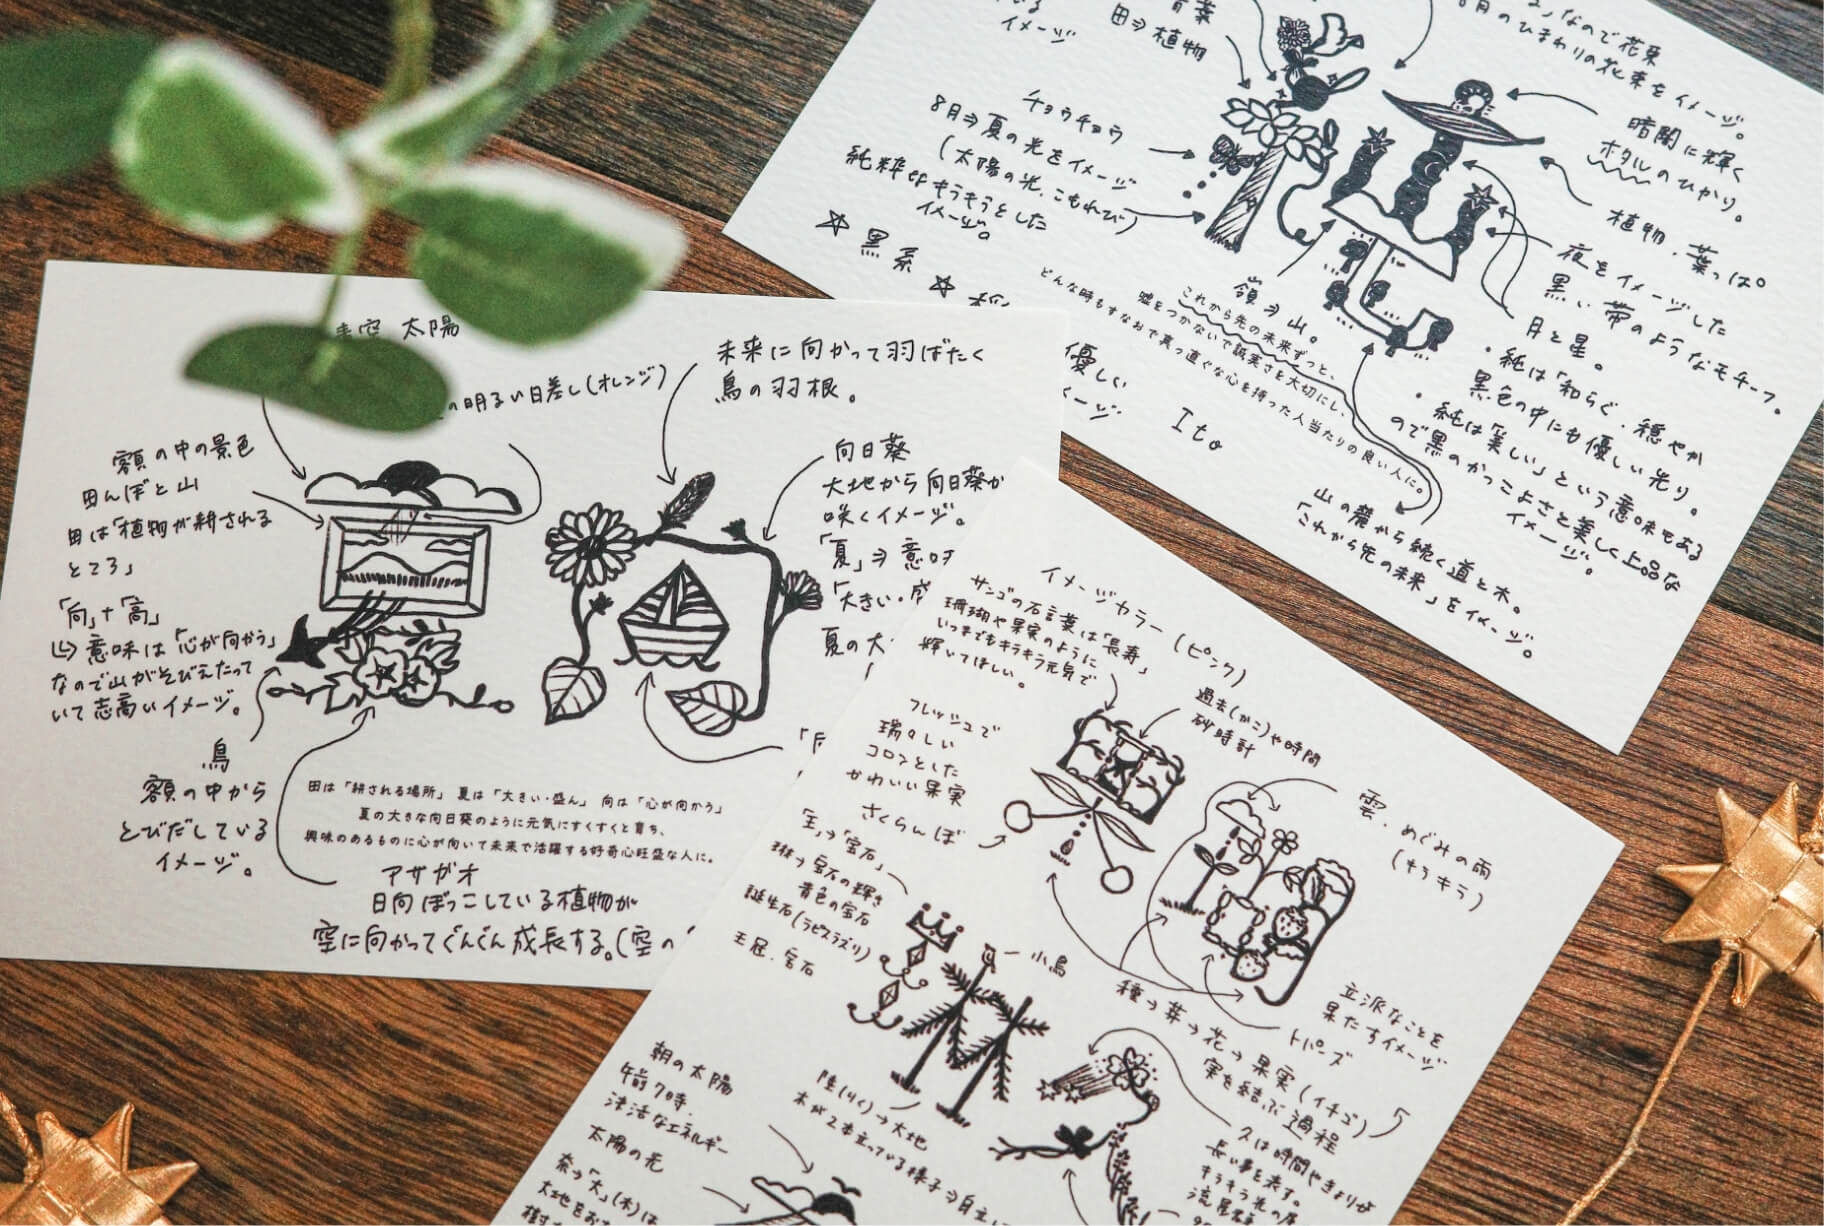 太陽
の明るい日差し(オレンジ)
未来に向かって羽ばたく
鳥の羽根。
額の中の景色
田んぼと山
田は「植物が耕される
ところ」
「向」+「高」
意味は「心が向かう」
なので山がそびえたって
いて志高いイメージ。
鳥
額の中から
とびだしている
イメージ。
向日葵
大地から向日葵が
咲くイメージ。
「夏」⇒意味
「大きい・盛
夏の大
田は「耕される場所」 夏は「大きい・盛ん」 向は「心が向かう」
夏の大きな向日葵のように元気にすくすくと育ち、
興味のあるものに心が向いて未来で活躍する好奇心旺盛な人に。
アサガオ
日向ぼっこしている植物が
空に向かってぐんぐん成長する。(空の
イメージ
育葉
田⇒植物
なので花束
8月のひまわりの花束をイメージ。
チョウチョウ
8月⇒夏の光をイメージ
(太陽の光、こもれび)
純粋でキラキラとした
イメージ。
☆黒系☆
暗闇に輝く
ホタルのひかり。
植物・葉っぱ。
夜をイメージした
黒い帯のようなモチーフ。
月と星。
・純は「和らぐ、穏やか
黒色の中にも優しい光り。
・純は「美しい」という意味もある
ので黒のかっこよさと美しく上品な
イメージ。
嶺⇒山。
これから先の未来ずっと、
嘘をつかないで誠実さを大切にし、
どんな時もすなおで真っ直ぐな心を持った人当たりの良い人に。
優しい
メージ
Ito
山の麓から続く道と木。
「これから先の未来」をイメージ。
イメージカラー(ピンク)
サンゴの石言葉は「長寿」
珊瑚や果実のように
いつまでもキラキラ元気で
輝いてほしい。
過去(かこ)や時間
砂時計
フレッシュで
瑞々しい
コロンとした
かわいい果実
さくらんぼ
雲、めぐみの雨
(キラキラ)
「王」→「宝石」
琳→宝石の輝き
黄色の宝石
誕生石(ラピスラズリ)
王冠、宝石
小鳥
種→芽→花→果実(イチゴ)
実を結ぶ過程
トパーズ
立派なことを
果たすイメージ
朝の太陽
午前7時、
活なエネルギー
太陽の光
奈→「大」(木)は
大地をお
陸(りく)→大地
木が2本立っている様子⇒自立
久は時間やきょりが
長い事を表す。
キラキラ光の尾
流星群